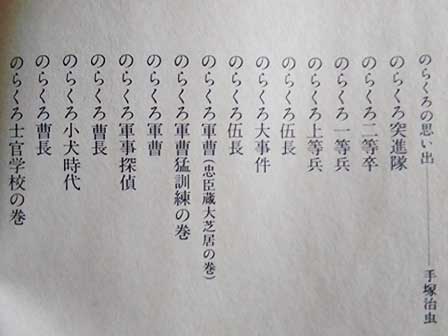 のらくろの思い出――――手塚治虫
のらくろ突進隊
のらくろ二等卒
のらくろ一等兵
のらくろ上等兵
のらくろ伍長
のらくろ大事件
のらくろ伍長
のらくろ軍曹(忠臣蔵大芝居の巻)
のらくろ軍曹猛訓練の巻
のらくろ軍曹
のらくろ軍事探偵
のらくろ曹長
のらくろ小犬時代
のらくろ曹長
のらくろ士官学校の巻